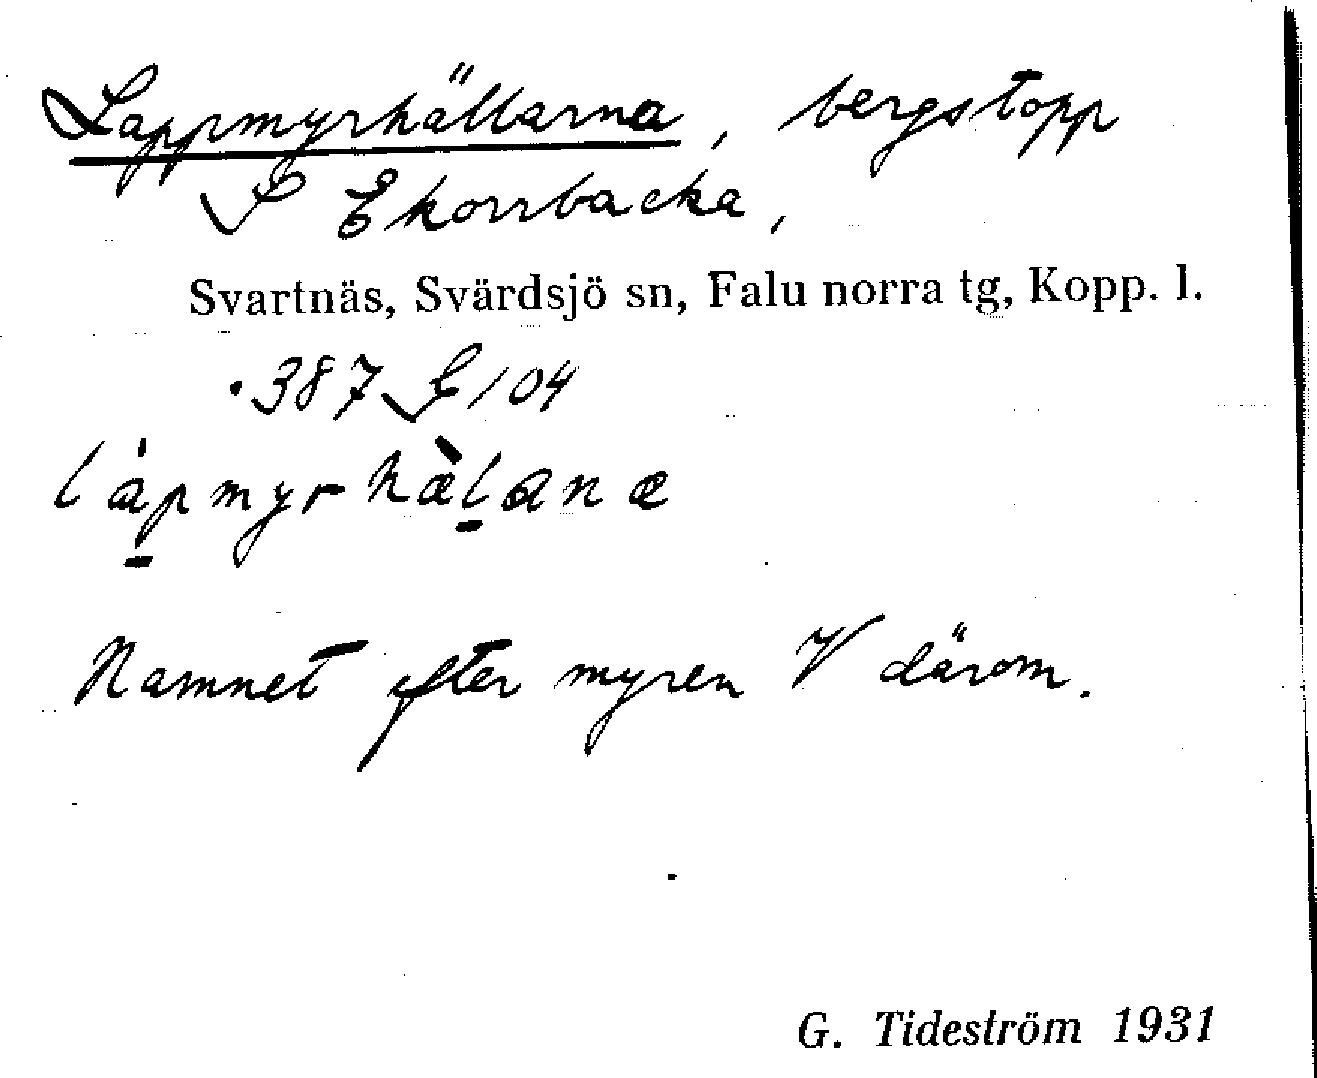 Lappmyrhällarna, bergstopp
S Ekorrbacka,
Svartnäs, Svärdsjö sn, Falu norra tg, Kopp. l.
387 G/04
làpmyrhæ̀lanæ
Namnet efter myren V därom.
G. Tideström 1931